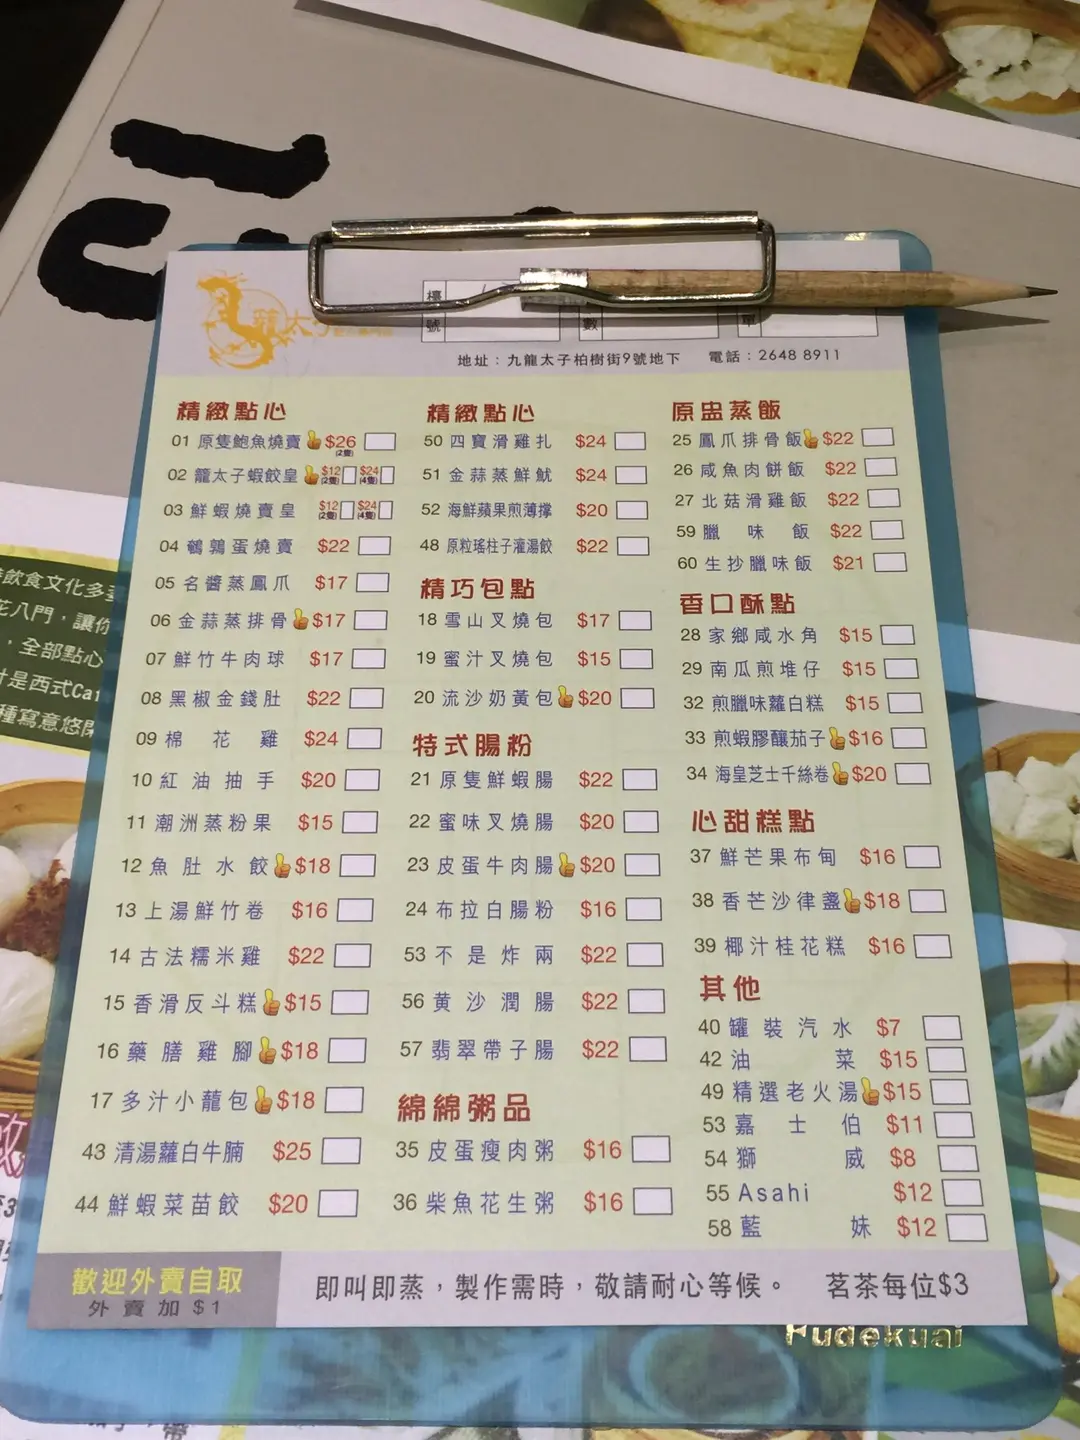 龍太子
檯號
數
單
地址：九龍太子柏樹街9號地下 電話：2648 8911
精緻點心
01 原隻鮑魚燒賣 $26 (2隻)
02 龍太子蝦餃皇 $12 (2隻) $24 (4隻)
03 鮮蝦燒賣皇 $12 (2隻) $24 (4隻)
04 鵪鶉蛋燒賣 $22
05 名醬蒸鳳爪 $17
06 金蒜蒸排骨 $17
07 鮮竹牛肉球 $17
08 黑椒金錢肚 $22
09 棉花雞 $24
10 紅油抽手 $20
11 潮洲蒸粉果 $15
12 魚肚水餃 $18
13 上湯鮮竹卷 $16
14 古法糯米雞 $22
15 香滑反斗糕 $15
16 藥膳雞腳 $18
17 多汁小蘢包 $18
43 清湯蘿白牛腩 $25
44 鮮蝦菜苗餃 $20
精緻點心
50 四寶滑雞扎 $24
51 金蒜蒸鮮魷 $24
52 海鮮蘋果煎薄撐 $20
48 原粒瑤柱子灌湯餃 $22
精巧包點
18 雪山叉燒包 $17
19 蜜汁叉燒包 $15
20 流沙奶黃包 $20
特式腸粉
21 原隻鮮蝦腸 $22
22 蜜味叉燒腸 $20
23 皮蛋牛肉腸 $20
24 布拉白腸粉 $16
53 不是炸兩 $22
56 黄沙潤腸 $22
57 翡翠帶子腸 $22
綿綿粥品
35 皮蛋瘦肉粥 $16
36 柴魚花生粥 $16
原盅蒸飯
25 鳳爪排骨飯 $22
26 咸魚肉餅飯 $22
27 北菇滑雞飯 $22
59 臘味飯 $22
60 生抄臘味飯 $21
香口酥點
28 家鄉咸水角 $15
29 南瓜煎堆仔 $15
32 煎臘味蘿白糕 $15
33 煎蝦膠釀茄子 $16
34 海皇芝士千絲卷 $20
心甜糕點
37 鮮芒果布甸 $16
38 香芒沙律盞 $18
39 椰汁桂花糕 $16
其他
40 罐裝汽水 $7
42 油菜 $15
49 精選老火湯 $15
53 嘉士伯 $11
54 獅威 $8
55 Asahi $12
58 藍妹 $12
歡迎外賣自取
外賣加$1
即叫即蒸，製作需時，敬請耐心等候。 茗茶每位$3
Fudekuai
飲食文化多
花八門，讓你
，全部點心
是西式Caf
種寫意悠閒